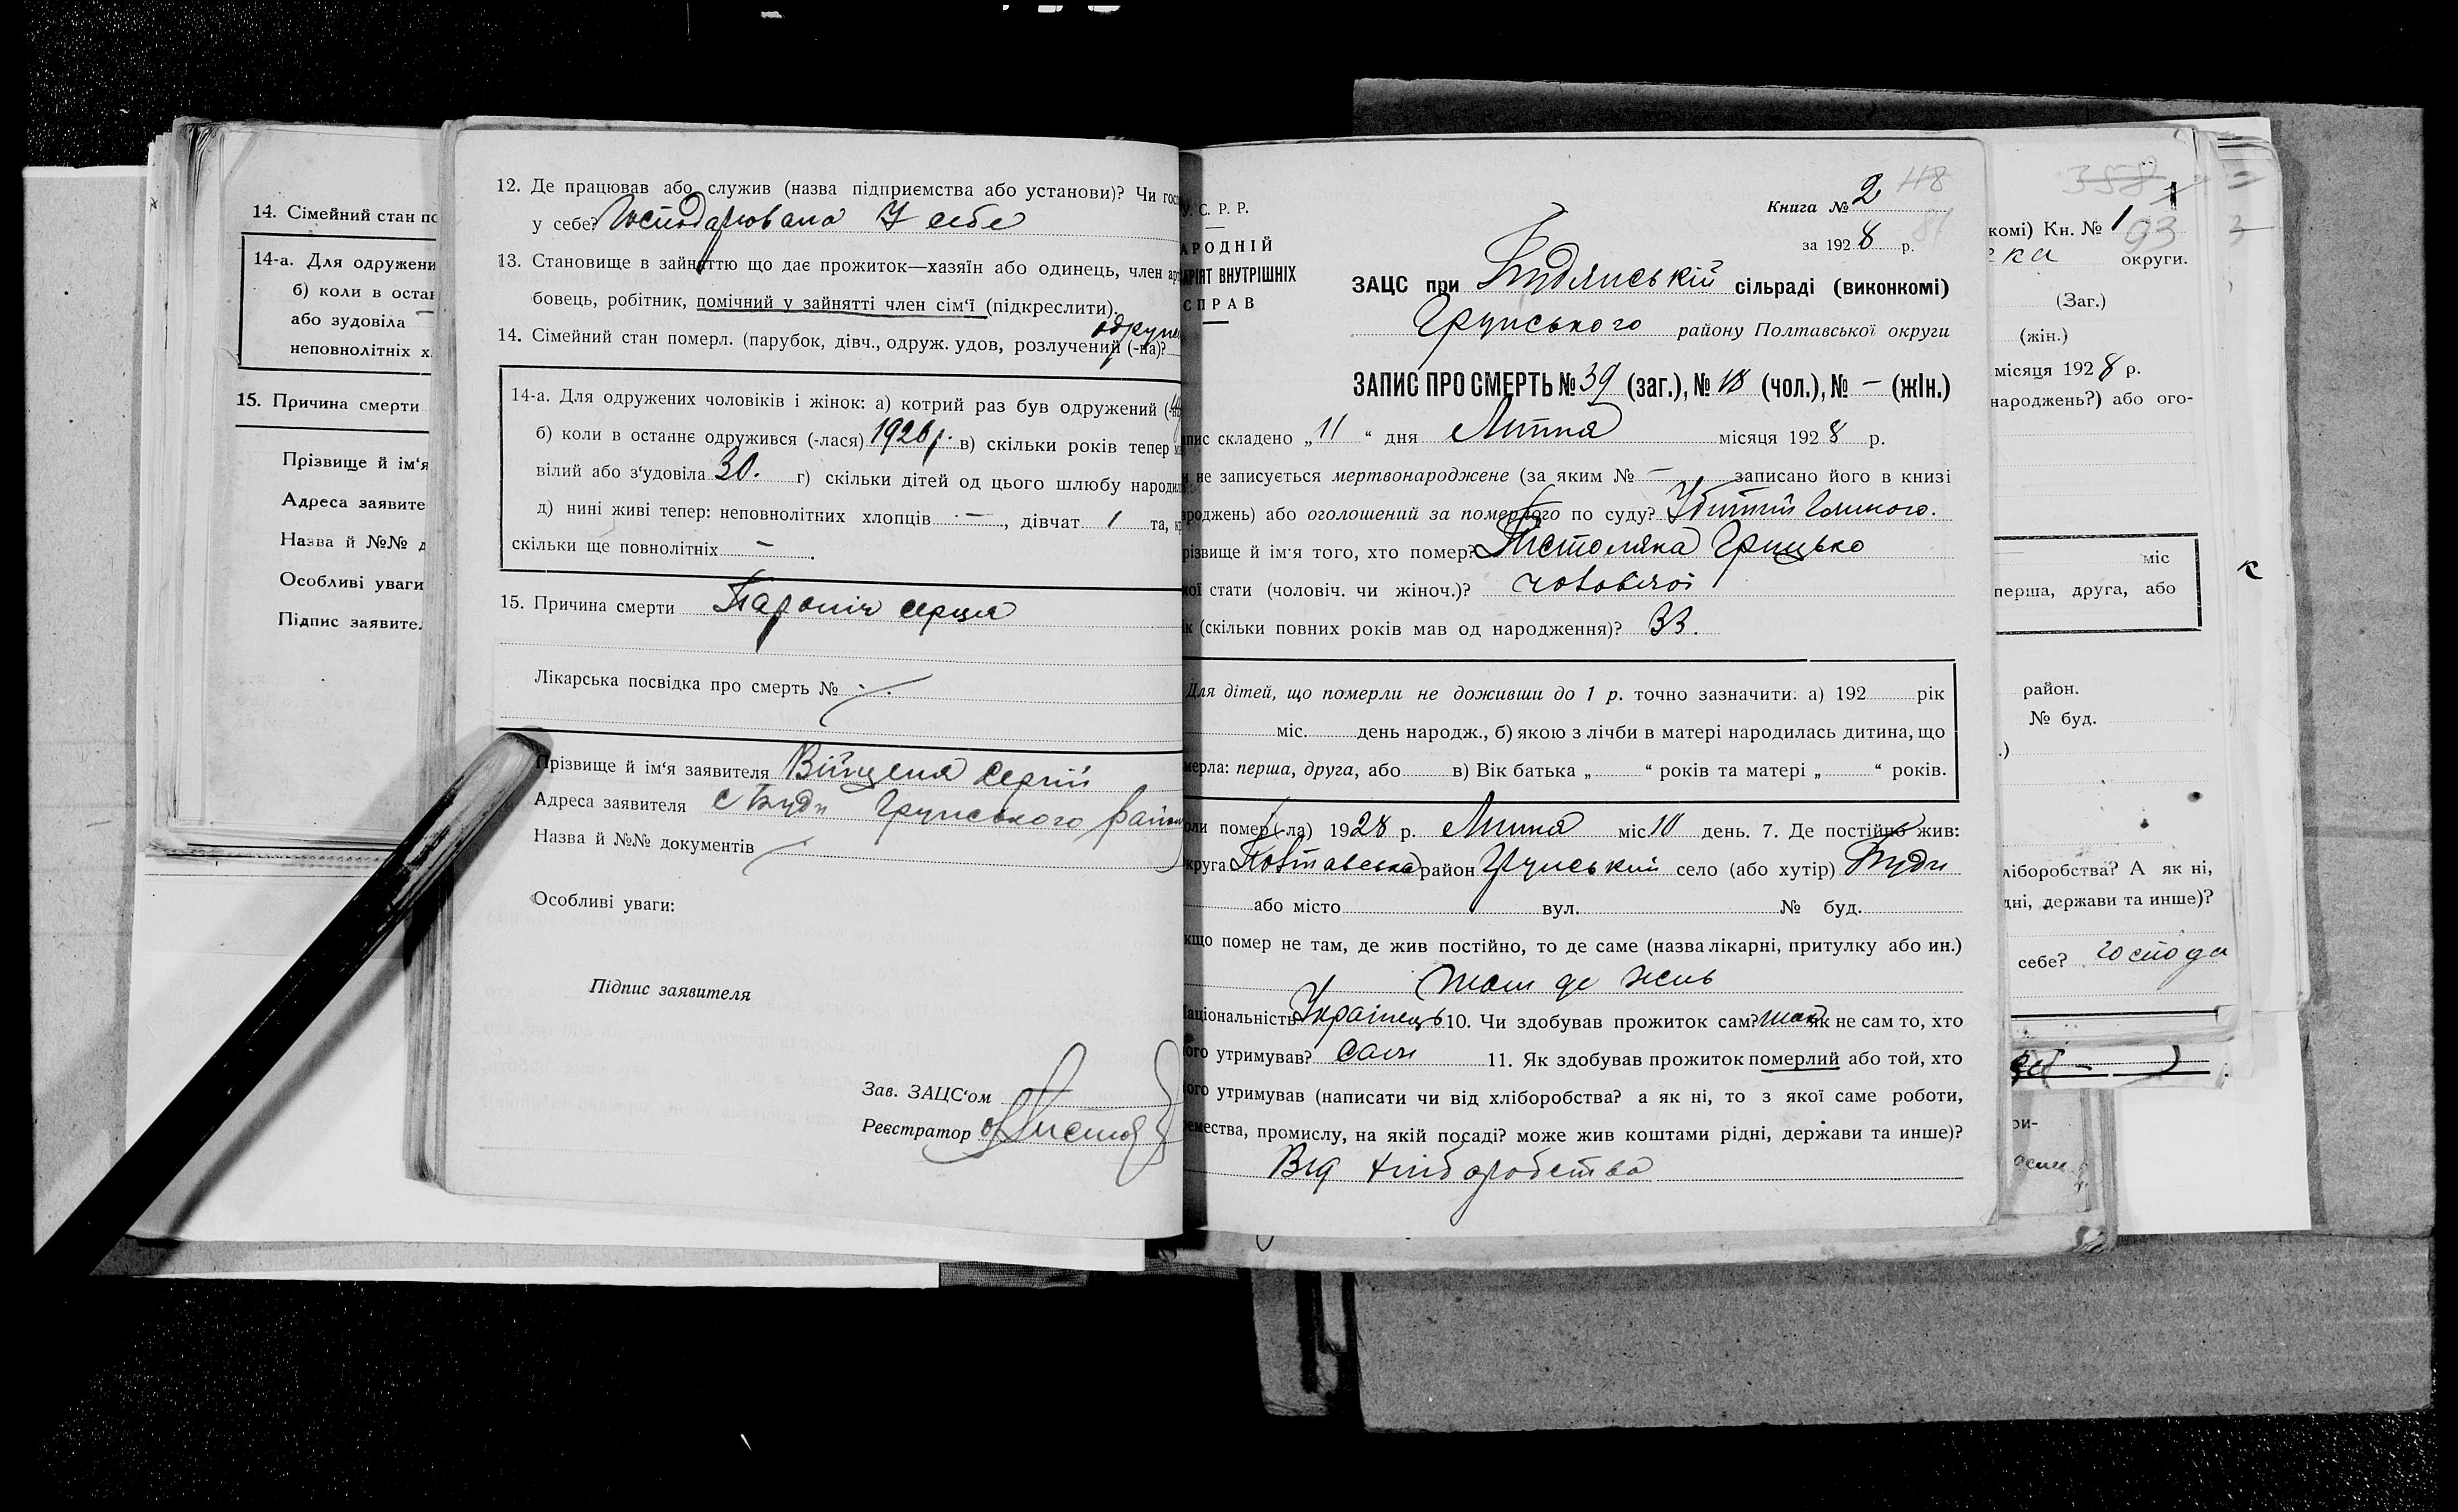 14. Сімейний стан по
14-а. Для одружени
б) коли в остан
або зудовіла
неповнолітніх х
15. Причина смерти
Прізвище й ім'я
Адреса заявите
Назва й №№ д
Особливі уваги
Підпис заявите
12. Де працював або служив (назва підприємства або установи)? Чи госп
у себе? Господарювала У себе
13. Становище в зайняттю що дає прожиток—хазяїн або одинець, член ар
бовець, робітник, помічний у зайнятті член сім'ї (підкреслити).
14. Сімейний стан померл. (парубок, дівч., одруж. удов, розлучений (-на)?
14-а. Для одружених чоловіків і жінок: а) котрий раз був одружений
б) коли в останнє одружився (-лася) 1926 р. в) скільки років тепер
вілий або з'удовіла 30. г) скільки дітей од цього шлюбу народил
д) нині живі тепер: неповнолітних хлопців —, дівчат 1 та,
скільки ще повнолітніх — .
15. Причина смерти серця
Лікарська посвідка про смерть №
Прізвище й ім'я заявителя Сергій
Адреса заявителя с Буди Грунського район
Назва й №№ документів
Особливі уваги:
Підпис заявителя
Зав. ЗАЦС'ом
Реєстратор
У. С. Р. Р.
АРОДНІЙ
АРІЯТ ВНУТРІШНІХ
СПРАВ
Книга № 2 118
за 1928 р. 81
ЗАЦС при Будянській сільраді (виконкомі)
Грунського району Полтавської округи
ЗАПИС ПРО СМЕРТЬ № 39 (заг.), № 18 (чол.), № — (жін.)
пис складено „11“ дня Липня місяця 1928 р.
не записується мертвонароджене (за яким № — записано його в книзі
роджень) або оголошений за померлого по суду?
різвище й ім'я того, хто помер? Пистоляка Грицько
кої стати (чоловіч. чи жіноч.)? чоловічої
к (скільки повних років мав од народження)? 33.
Для дітей, що померли не доживши до 1 р. точно зазначити: а) 192 рік
міс. день народж., б) якою з лічби в матері народилась дитина, що
мерла: перша, друга, або в) Вік батька „ “ років та матері „ “ років.
оли помер (-ла) 1928 р. Липня міс 10 день. 7. Де постійно жив:
круга Полтавська район Грунський село (або хутір) Буди
або місто вул. № буд.
кщо помер не там, де жив постійно, то де саме (назва лікарні, притулку або ин.)
там де жив
аціональність Українець 10. Чи здобував прожиток сам? так як не сам то, хто
ого утримував? сам 11. Як здобував прожиток померлий або той, хто
ого утримував (написати чи від хліборобства? а як ні, то з якої саме роботи,
емества, промислу, на якій посаді? може жив коштами рідні, держави та инше)?
Від хліборобства
358
комі) Кн. № 1
93
ка округи.
(Заг.)
(жін.)
місяця 1928 р.
народжень?) або ого-
міс
перша, друга, або
район.
№ буд.
.)
ліборобства? А як ні,
дні, держави та инше)?
себе? господа